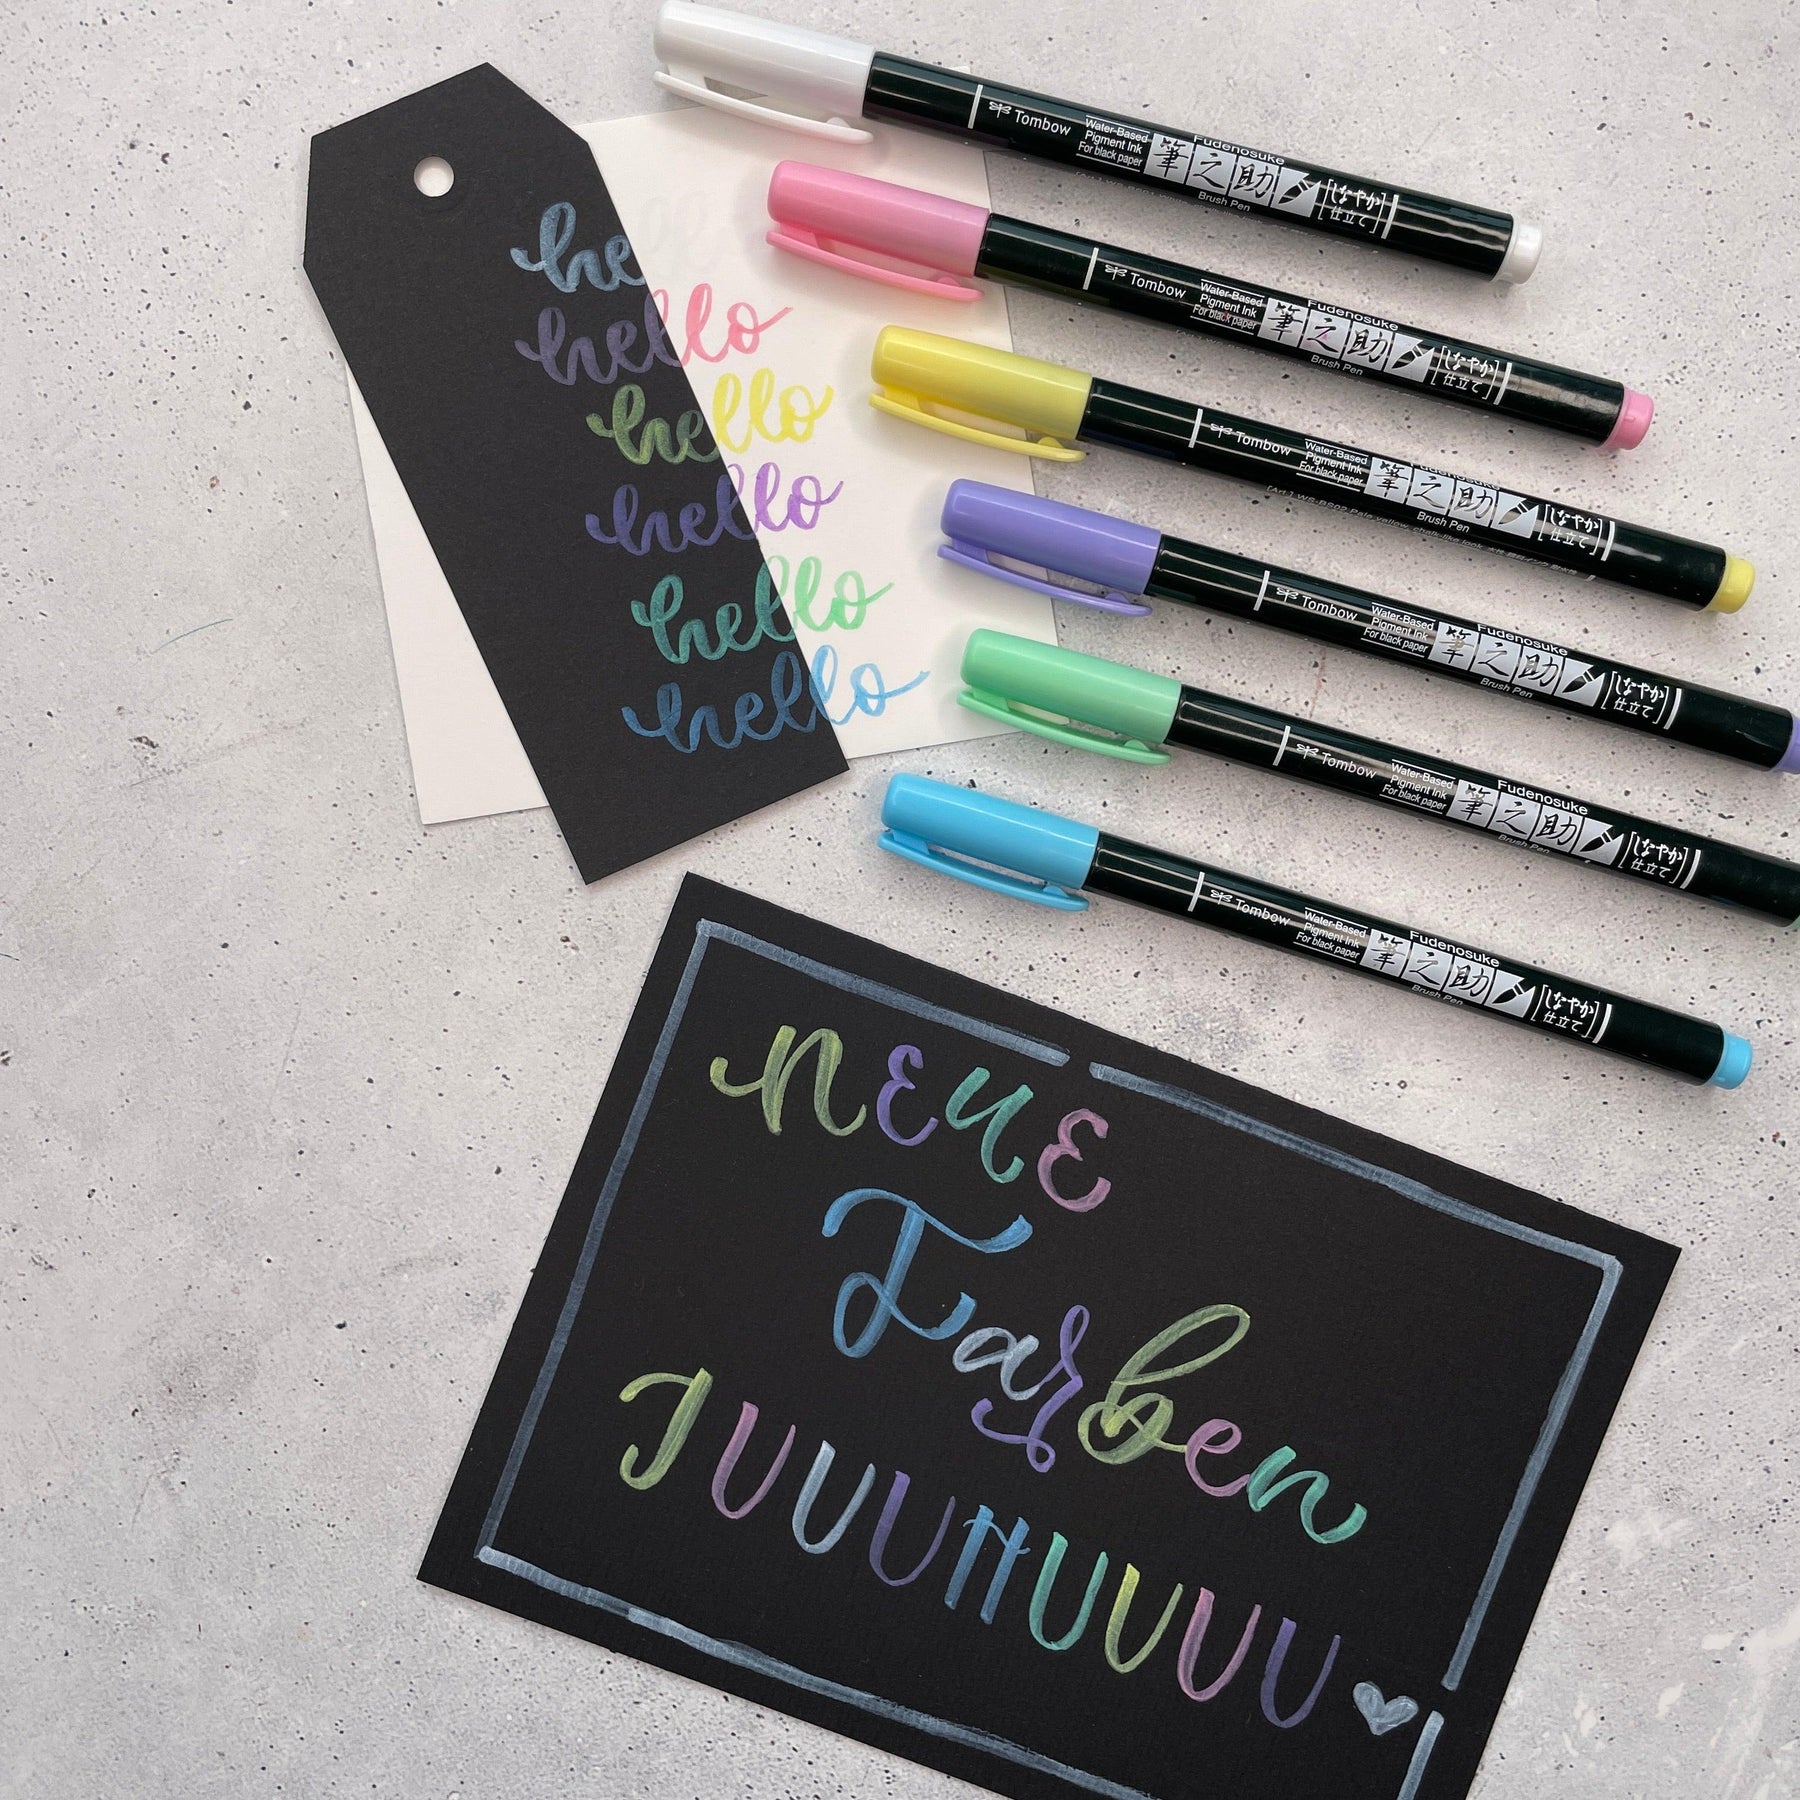 hello
hello
hello
hello
hello
hello
Tombow
Water-Based
Pigment Ink
For black paper
Fudenosuke
筆之助
Brush Pen
[しなやか]
仕立て
Tombow
Water-Based
Pigment Ink
For black paper
Fudenosuke
筆之助
Brush Pen
[しなやか]
仕立て
Tombow
Water-Based
Pigment Ink
For black paper
Fudenosuke
筆之助
Brush Pen
[しなやか]
仕立て
[Art.] WS-BS02 Pale yellow, chalk-like look
Tombow
Water-Based
Pigment Ink
For black paper
Fudenosuke
筆之助
Brush Pen
[しなやか]
仕立て
Tombow
Water-Based
Pigment Ink
For black paper
Fudenosuke
筆之助
Brush Pen
[しなやか]
仕立て
Tombow
Water-Based
Pigment Ink
For black paper
Fudenosuke
筆之助
Brush Pen
[しなやか]
仕立て
NEUE
Farben
JUUUHUUUU